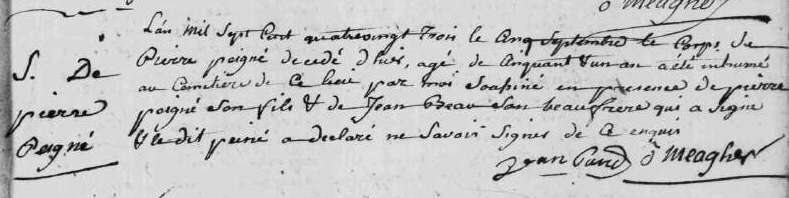 ô Meagher
L'an mil Sept Cent quatrevingt Trois le Cinq Septembre le Corps de
S. De
pierre
Poigné
Pierre poigné decedé d'hier, agé de Cinquant & un an a été inhumé
au Cimetiere de Ce lieu par moi Soussiné en presence de pierre
poigné Son fils & de Jean Beau Son beaufrere qui a Signé
& le dit peiné a declaré ne Savoir Signer de Ce enquis
Jean ô Meagher